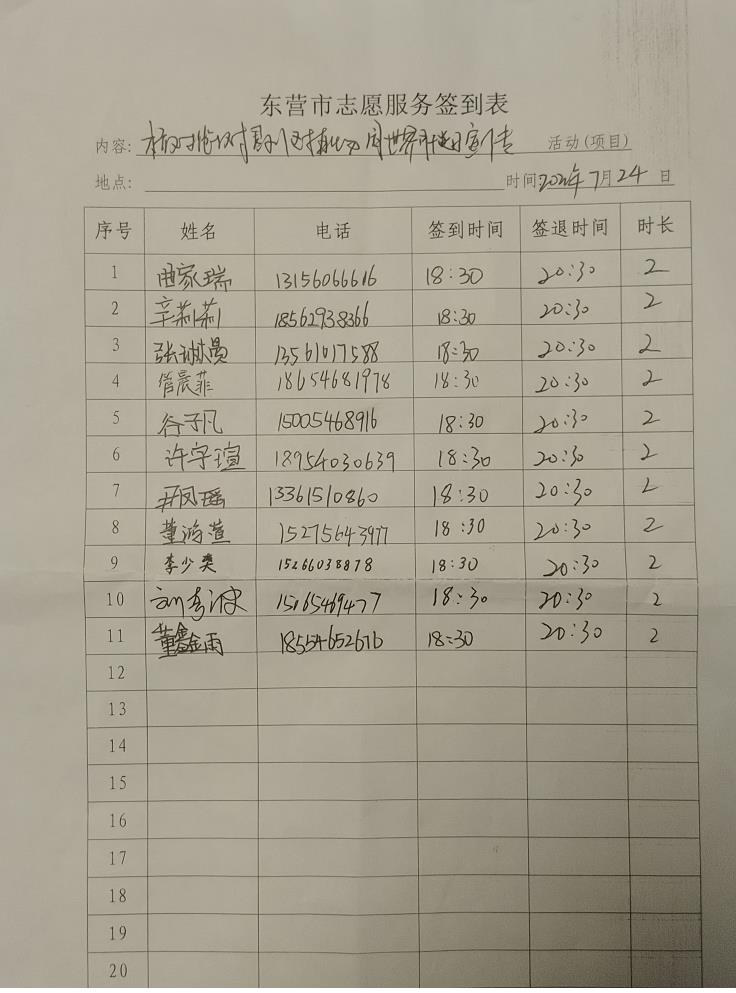 东营市志愿服务签到表
内容: 世界 宣传 活动(项目)
地点: 时间: 7月24日
序号 姓名 电话 签到时间 签退时间 时长
1 曲家瑞 13156066616 18:30 20:30 2
2 辛莉莉 18562938366 18:30 20:30 2
3 张琳曼 13561017588 18:30 20:30 2
4 管晨菲 18654681978 18:30 20:30 2
5 谷子凡 15005468916 18:30 20:30 2
6 许字瑄 18954030639 18:30 20:30 2
7 凤瑶 13361510860 18:30 20:30 2
8 董鸿萱 15275643977 18:30 20:30 2
9 李少奕 15266038878 18:30 20:30 2
10 刘 18:30 20:30 2
11 董鑫雨 18554652676 18:30 20:30 2
12
13
14
15
16
17
18
19
20